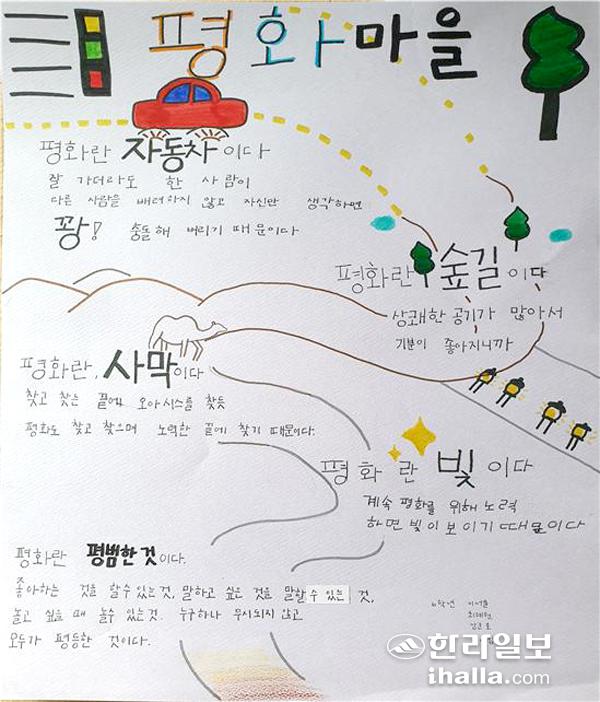 평화마을
평화란 자동차이다
잘 가더라도 한 사람이
다른 사람을 배려하지 않고 자신만 생각하면
쾅! 충돌해 버리기 때문이다
평화란 숲길이다
상쾌한 공기가 많아서
기분이 좋아지니까
평화란, 사막이다
찾고 찾는 끝에 오아시스를 찾듯
평화도 찾고 찾으며 노력한 끝에 찾기 때문이다.
평화란 빛이다
계속 평화를 위해 노력
하면 빛이 보이기 때문이다
평화란 평범한 것이다.
좋아하는 것을 할 수 있는 것, 말하고 싶은 것을 말할 수 있는 것,
놀고 싶을 때 놀 수 있는 것. 누구하나 무시되지 않고
모두가 평등한 것이다.
6학년
한라일보
ihalla.com